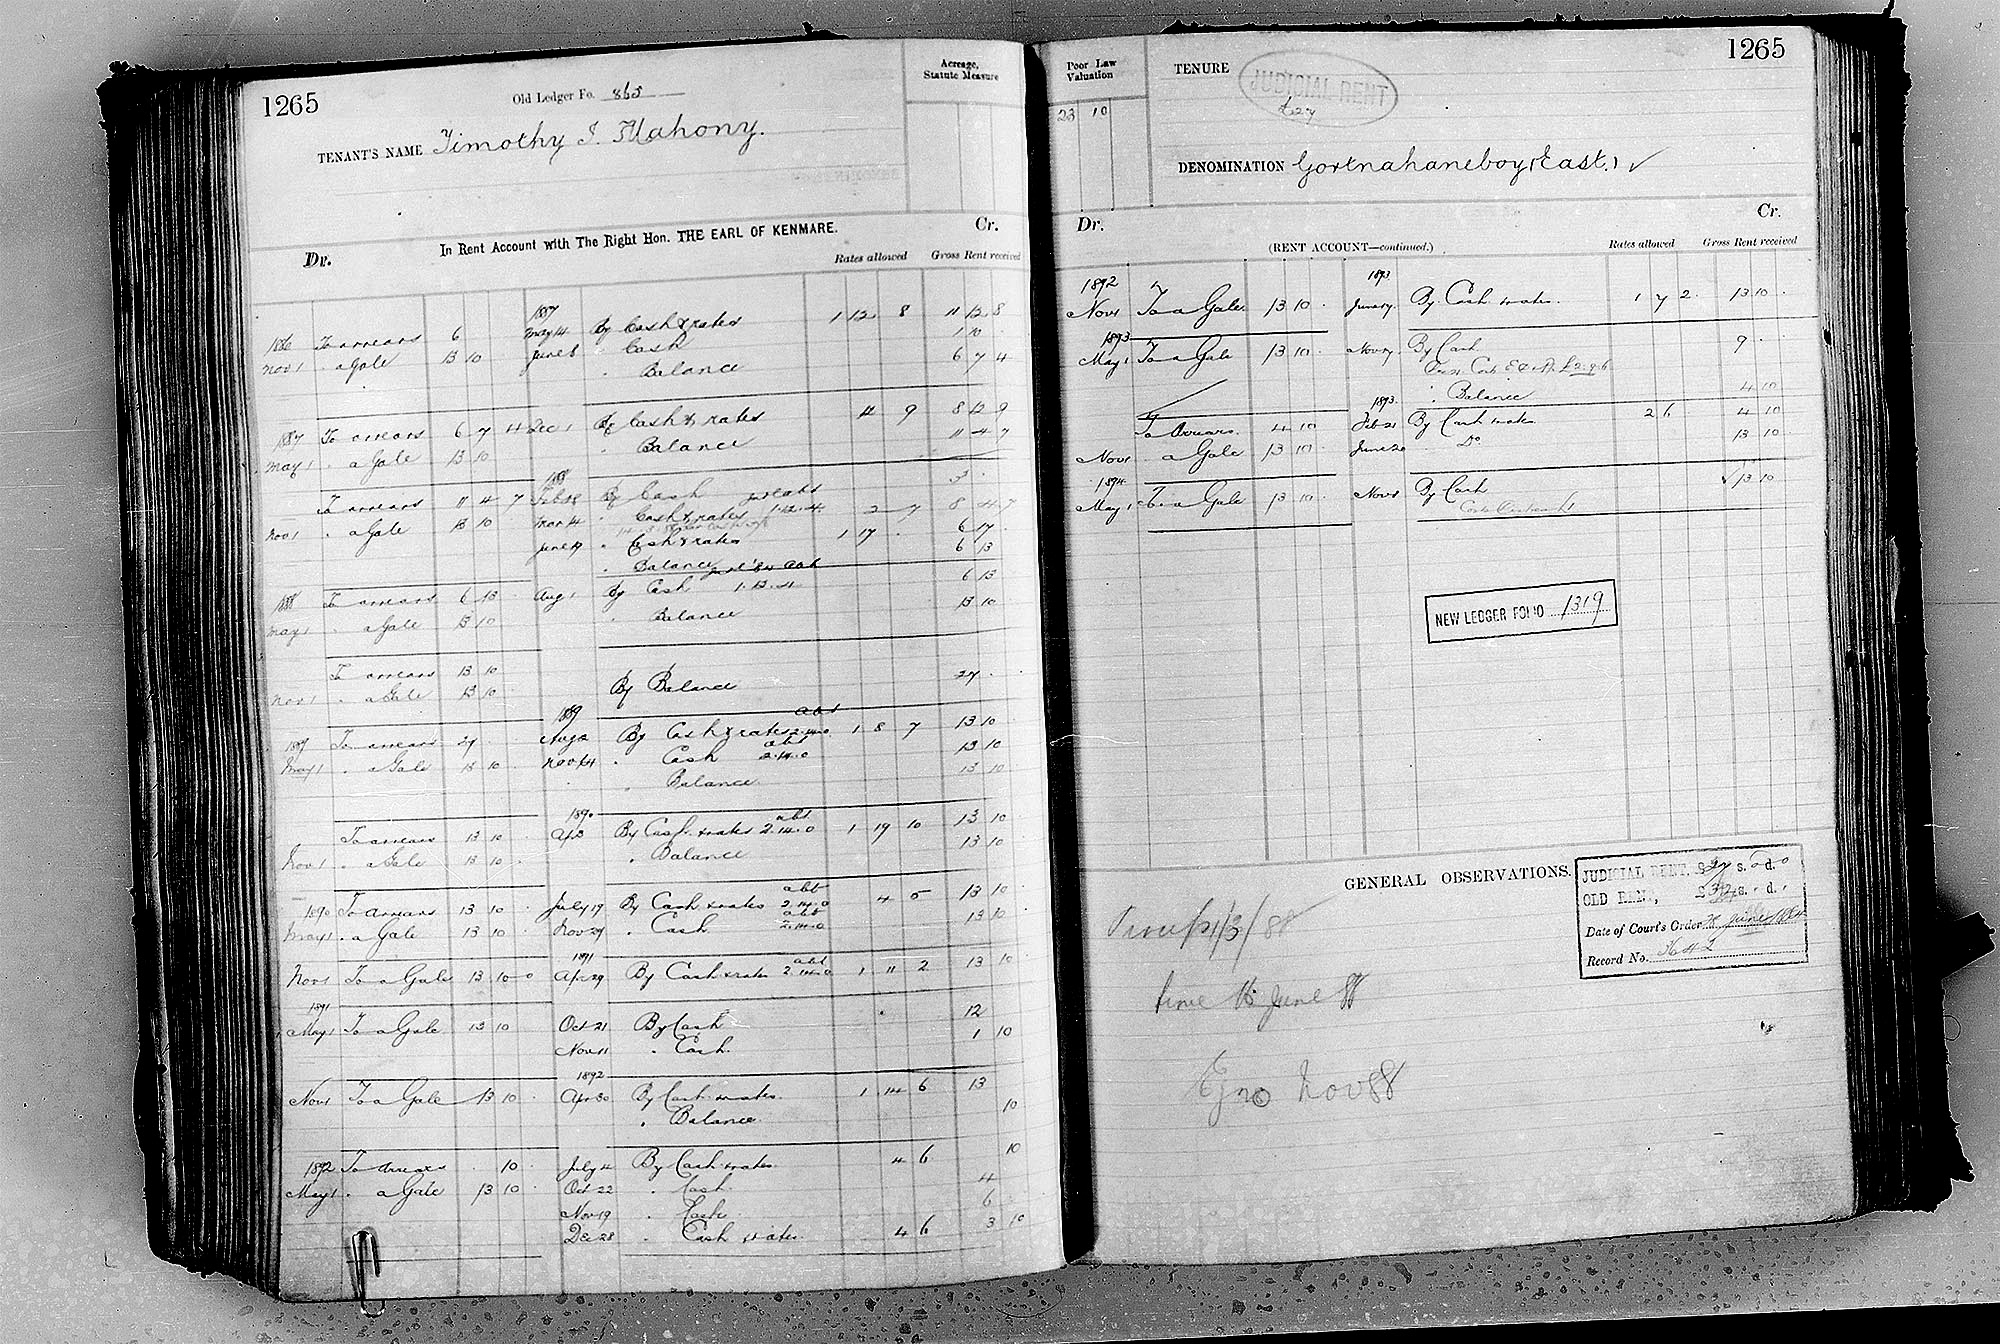 1265
Old Ledger Fo. 865
Acreage, Statute Measure
TENANT'S NAME Timothy J. Mahony.
In Rent Account with The Right Hon. THE EARL OF KENMARE.
Dr. Cr.
Rates allowed Gross Rent received
1887
1886 To arrears 6 May 14 By Cash & rates 1 12 8 11 12 8
Nov 1 " a Gale 13 10 June 8 " Cash 1 10
" Balance 6 7 4
1887 To arrears 6 7 4 Dec 1 By Cash & rates 4 9 8 12 9
May 1 " a Gale 13 10 " Balance 11 4 7
1888
To arrears 11 4 7 Feb 18 By Cash 3
Nov 1 " a Gale 13 10 Mar 14 " Cash & rates 1.12.4 2 7 8 4 7
June 19 " Cash & rates 1 17 6 17
" Balance 6 13
1888 To arrears 6 13 Aug 1 By Cash 1.13.4 6 13
May 1 " a Gale 13 10 " Balance 13 10
To arrears 13 10
Nov 1 " a Gale 13 10 By Balance 27
1889 abt
1889 To arrears 27 Aug 2 By Cash & rates 2.14.0 1 8 7 13 10
abt
May 1 " a Gale 13 10 Nov 14 " Cash 2.14.0 13 10
" Balance 13 10
1890 abt
To arrears 13 10 Ap 3 By Cash & rates 2.14.0 1 19 10 13 10
Nov 1 " a Gale 13 10 " Balance 13 10
abt
1890 To arrears 13 10 July 19 By Cash & rates 2.14.0 4 5 13 10
abt
May 1 " a Gale 13 10 Nov 29 " Cash 2.14.0 13 10
1891 abt
Nov 1 To a Gale 13 10 0 Apr 29 By Cash & rates 2.14.0 1 11 2 13 10
1891
May 1 To a Gale 13 10 Oct 21 By Cash 12
Nov 11 " Cash 1 10
1892
Nov 1 To a Gale 13 10 Apr 30 By Cash & rates 1 14 6 13
" Balance 10
1892 To arrears 10 July 4 By Cash & rates 4 6 10
May 1 " a Gale 13 10 Oct 22 " Cash 4
Nov 19 " Cash 6
Dec 28 " Cash & rates 4 6 3 10
1265
Poor Law Valuation
23 10
TENURE
JUDICIAL RENT
£27
DENOMINATION Gortnahaneboy (East.) ✓
Dr. Cr.
(RENT ACCOUNT—continued.)
Rates allowed Gross Rent received
1892 1893
Nov 1 To a Gale 13 10 June 17 By Cash & rates 1 7 2 13 10
1893
May 1 To a Gale 13 10 Nov 7 By Cash 9
£2.9.6
" Balance 4 10
1893
To Arrears 4 10 Feb 21 By Cash & rates 2 6 4 10
Nov 1 " a Gale 13 10 June 20 " Do 13 10
1894
May 1 To a Gale 13 10 Nov 8 By Cash ✓ 13 10
NEW LEDGER FOLIO 1319
GENERAL OBSERVATIONS.
JUDICIAL RENT, £27 s. 0 d. 0
OLD RENT, £ s. d.
Date of Court's Order June 1884
Record No.
1/3/88
time 16 June 88
Nov 88